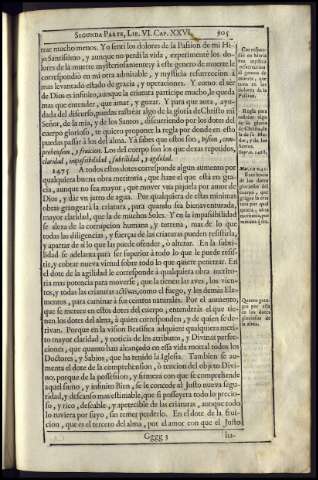 SEGUNDA PARTE, LIB. VI. CAP. XXVI. 805
trar mucho menos. Yo sentì los dolores de la Passion de mi Hijo
Santissimo, y aunque no perdi la vida, experimentè los do-
lores de la muerte mysteriosamente; y à este genero de muerte le
correspondiò en mi otra admirable, y mystica resurreccion à
mas levantado estado de gracia, y operaciones. Y como el sèr
de Dios es infinito, aunque la criatura participe mucho, le queda
mas que entender, que amar, y gozar. Y para que aora, ayu-
dada del discurso, puedas rastrear algo de la gloria de Christo mi
Señor, de la mia, y de los Santos, discurriendo por los dotes del
cuerpo glorioso, te quiero proponer la regla por donde en esto
puedas passar à los del alma. Yà sabes que estos son, vision, com-
prehension, y fruicion. Los del cuerpo son los que dexas repetidos,
claridad, impassibilidad, subtilidad, y agilidad.
1475 A todos estos dotes corresponde algun aumento por
qualquiera buena obra meritoria, que haze el que està en gra-
cia, aunque no sea mayor, que mover una pajuela por amor de
Dios, y dàr un jarro de agua. Por qualquiera de estas minimas
obras grangearà la criatura, para quando sea bienaventurada,
mayor claridad, que la de muchos Soles. Y en la impassibilidad
se alexa de la corrupcion humana, y terrena, mas de lo que
todas las diligencias, y fuerças de las criaturas pueden resistirla,
y apartar de sì lo que las puede ofender, ò alterar. En la subti-
lidad se adelanta para ser superior à todo lo que le puede resis-
tir, y cobrar nueva virtud sobre todo lo que quiere penetrar. En
el dote de la agilidad le corresponde à qualquiera obra merito-
ria mas potencia para moverse, que la tienen las aves, los vien-
tos, y todas las criaturas activas, como el fuego, y los demàs Ele-
mentos, para caminar à sus centros naturales. Por el aumento,
que se merece en estos dotes del cuerpo, entenderàs el que tie-
nen los dotes del alma, à quien corresponden, y de quien se de-
rivan. Porque en la vision Beatifica adquiere qualquiera meri-
to mayor claridad, y noticia de los atributos, y Divinas perfec-
ciones, que quantas han alcançado en esta vida mortal todos los
Doctores, y Sabios, que ha tenido la Iglesia. Tambien se au-
menta el dote de la comprehension, ò tencion del objeto Divi-
no; porque de la possession, y firmeza con que se comprehende
aquel sumo, y infinito Bien, se le concede al Justo nueva segu-
ridad, y descanso mas estimable, que si posseyera todo lo precio-
so, y rico, deseable, y apetecible de las criaturas, aunque todo
lo tuviera por suyo, sin temer perderlo. En el dote de la frui-
cion, que es el tercero del alma, por el amor con que el Justo
Gggg 3